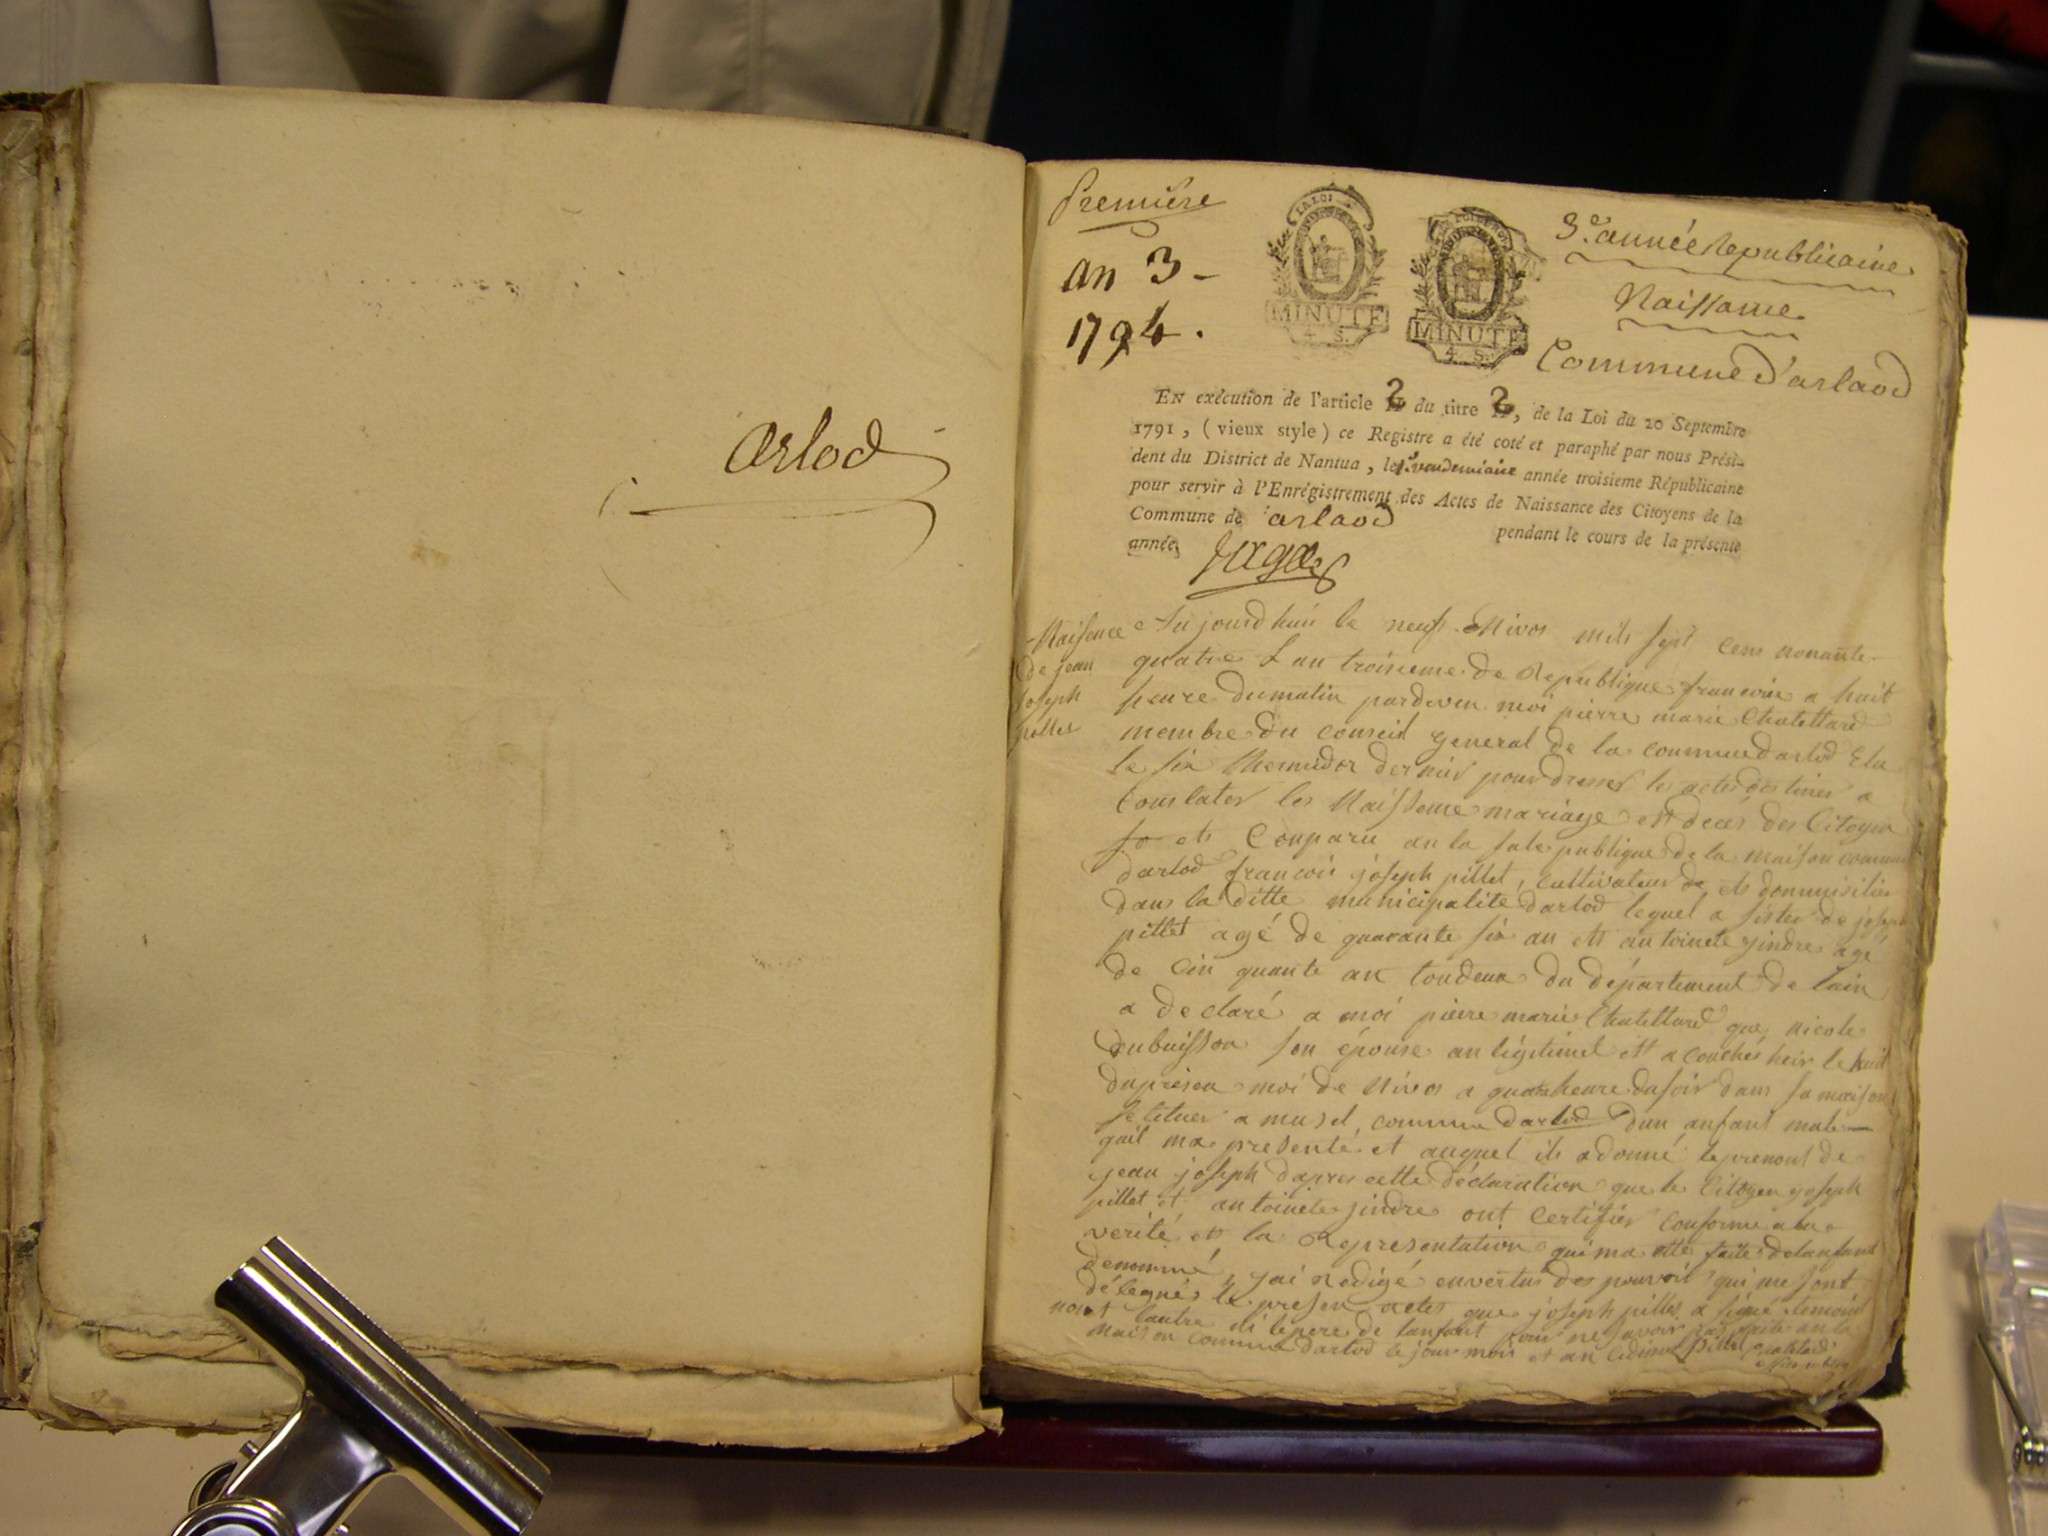 Arlod
Première
an 3 -
1794.
LA LOI
MINUTE
4. S.
MINUTE
4. S.
3.e année Republicaine
Naissance
Commune d'arlaod
EN exécution de l'article 2 du titre 2, de la Loi du 20 Septembre
1791, (vieux style) ce Registre a été coté et paraphé par nous Prési-
dent du District de Nantua, le 1.r vendemiaire année troisieme Républicaine
pour servir à l'Enrégistrement des Actes de Naissance des Citoyens de la
Commune de arlaod pendant le cours de la présente
année,
Naisence
de jean
joseph
pillet
Aujourdhui le neuf Nivos mils sept cens nonante
quatre Lan troisieme de Republique francoise a huit
heure du matin pardeven moi pierre marie Chatellard
membre du conseil general de la commune darlod Elu
le six thermidor dernier pour dresser les actes destines a
Constater les Naissence mariage et deces des Citoyen
et Conparu an la sale publique de la maison commune
darlod francois joseph pillet, cultivateur de et dommisilie
dans la ditte municipalite darlod lequel a sister de joseph
pillet agé de quarante six an et antoinete jindre agé
de cin quante an toudeux du département de lain
a declaré a moi pierre marie Chatellard que nicole
dubuisson son épouse an légitimel et acouchés heir le huit
du presen moi de Nivos a quatre heure du soir dans sa maison
setituer a musel, commune darlod dun anfant male
quil ma presenté et auquel ils adonné le prenont de
jean joseph dapres cette déclaration que le Citoyen joseph
pillet et antoinete jindre ont certifier conforme a la
verité et la Representation qui ma etté faite delanfant
denommé, jai Redigé envertus des pouvoit qui me sont
délegués le presen actes que joseph pillet a signé temoin
non lautre ni lepere de lanfant pour ne savoir fait an la
maison commune darlod le jour mois et an cidesus pillet Chatelard